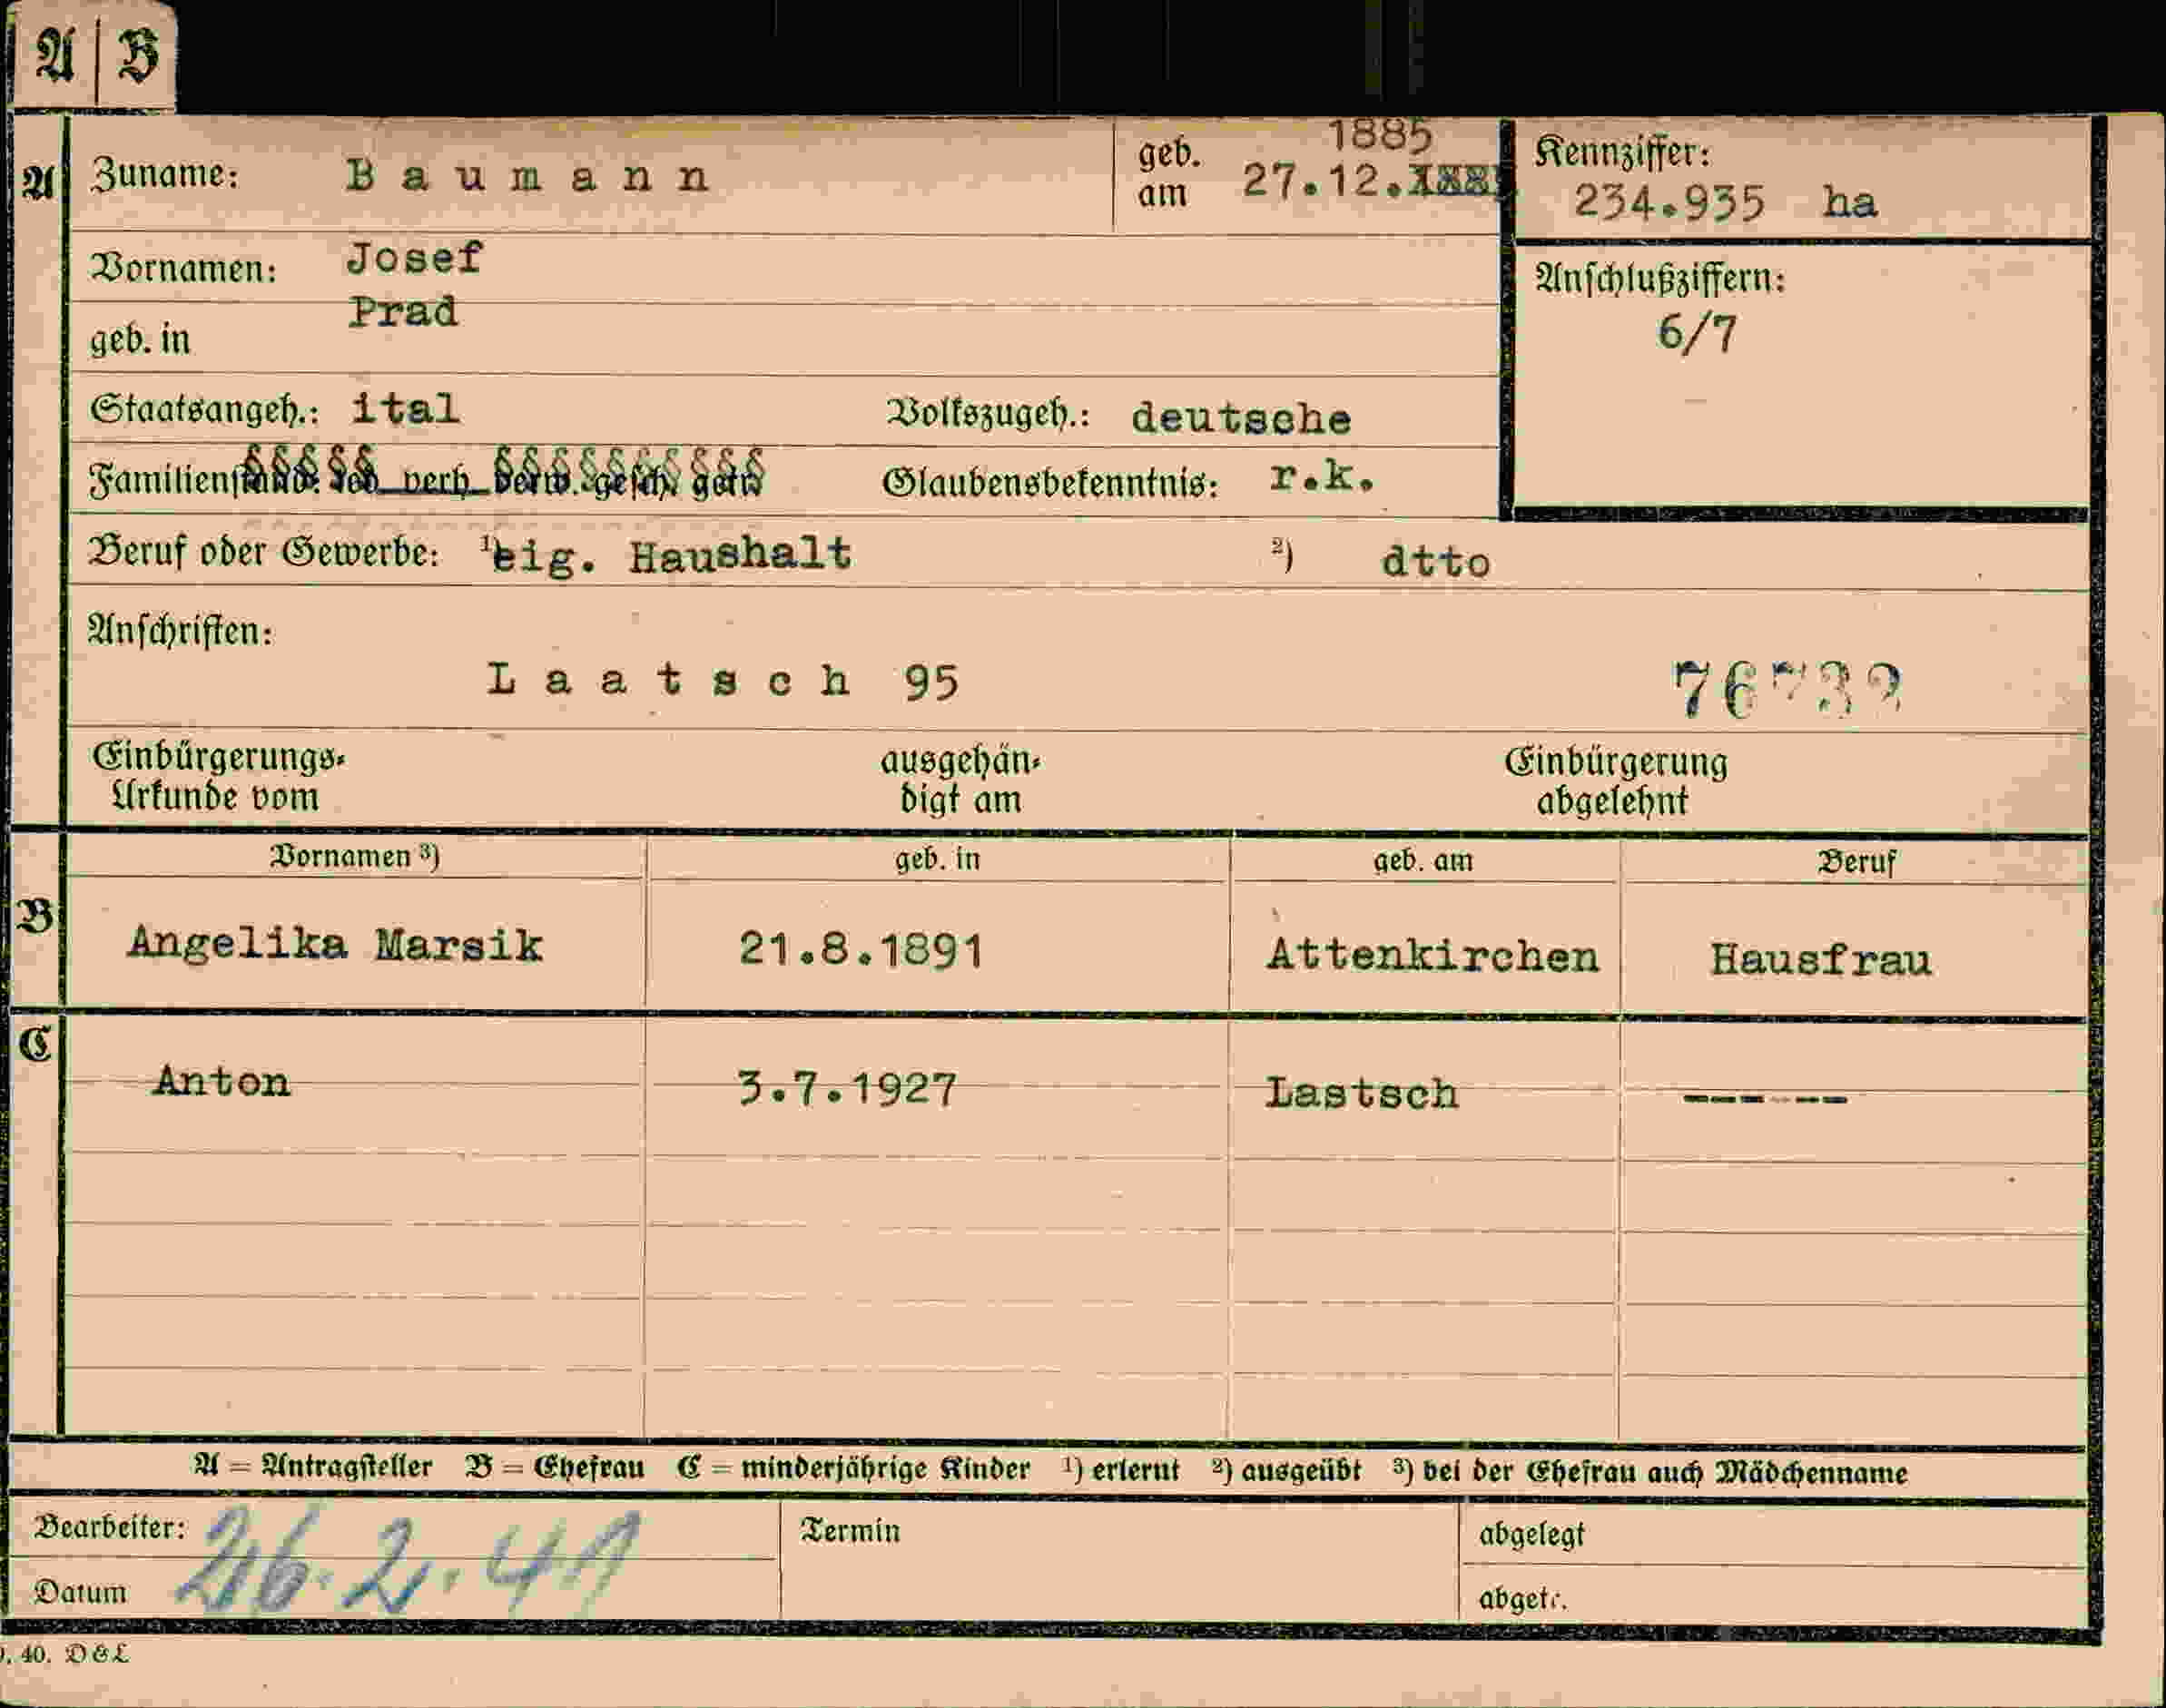 A | B
A
Zuname: Baumann
geb. am 27.12. 1885
Kennziffer:
234.935 ha
Vornamen: Josef
Anschlußziffern:
6/7
geb. in Prad
Staatsangeh.: ital Volkszugeh.: deutsche
Familienstand: led verh verw. gesch. getr. Glaubensbekenntnis: r.k.
Beruf oder Gewerbe: 1) eig. Haushalt 2) dtto
Anschriften:
Laatsch 95
76732
Einbürgerungs-Urkunde vom
ausgehändigt am
Einbürgerung abgelehnt
Vornamen 3) geb. in geb. am Beruf
B
Angelika Marsik 21.8.1891 Attenkirchen Hausfrau
C
Anton 3.7.1927 Lastsch ------
A = Antragsteller B = Ehefrau C = minderjährige Kinder 1) erlernt 2) ausgeübt 3) bei der Ehefrau auch Mädchenname
Bearbeiter:
Termin
abgelegt
26.2.41
Datum
abgetr.
40. D&L